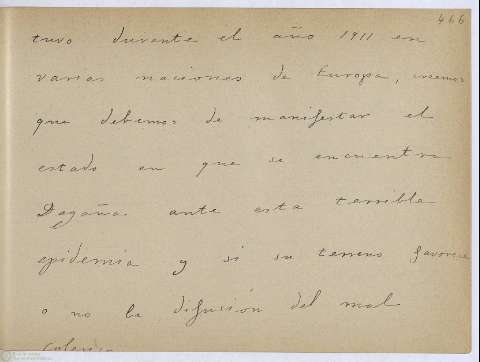 466
tuvo durante el año 1911 en
varias naciones de Europa, creemos
que debemos de manifestar el
estado en que se encuentra
Degaña ante esta terrible
epidemia y si su terreno favorece
o no la difusión del mal
colerico